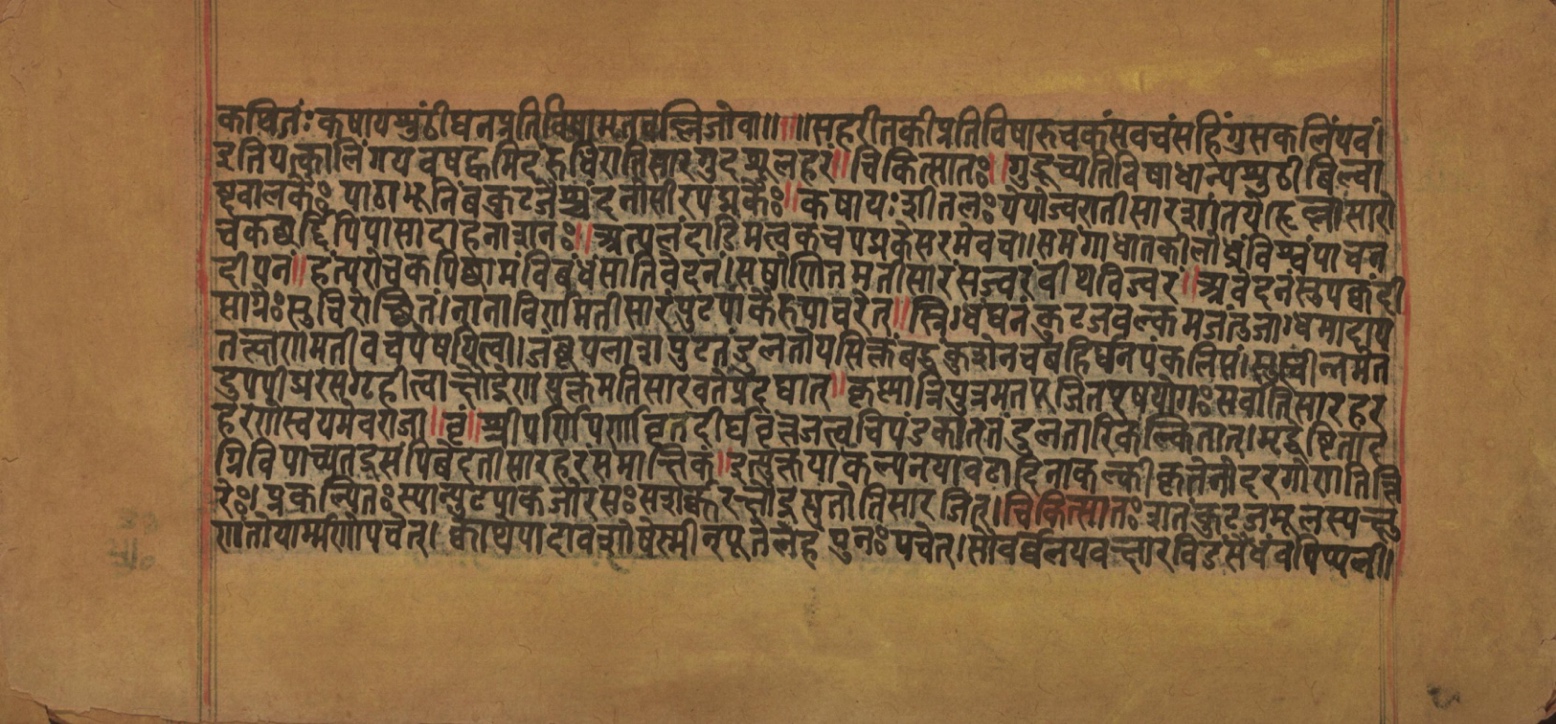 कथितः कषायशुंठीघनप्रतिविषामृतवल्लिजोवा॥ ॥ ॥सहरीतकीप्रतिविषारुचकंसवचंसहिंगुसकलिंगयवं।
इतियत्कालिंगयवषट्कमिदंरुधिरातिसारगुदशूलहर॥चिकित्सातः॥गुडूच्यतिविषाधान्यशुठीबिल्वा
ब्दवालकैः पाठाभूनिंबकुटजैश्चंदनोसीरपद्मकैः॥कषायःशीतलःपेयोज्वरातीसारशांतये।हृल्लासारो
चकछर्द्दिपिपासादाहनाशनः॥अत्पलंदाडिमत्वकचपद्मकेसरमेवचा।समंगाधातकीलोध्रंविश्वंपाचन
दीपनं॥हंत्परोचकपिछामंविबंधंसातिवेदनं।सषोणितमतीसारसज्वरंवाथविज्वर॥अवेदनंसुपक्वंदी
प्ताग्नेःसुचिरोच्छितं।नानाविर्णमतीसारंपुटपाकैरुपाचरेत्॥स्निग्धंघनंकुटजवल्कमजंतुजग्धमादाय
तत्क्षणमतीवचपेषयित्वा।जंबूपलाशपुटतंडुलतोयसिक्तंबद्धंकुशेनचबहिर्घनपंकलिप्तं।सुस्वीन्नमेत
दुपपीड्यरसंगृहीत्वाक्षौद्रेणयुक्तमतिसारवतेप्रदद्यात्॥कृष्णात्रिपुत्रमतपूजितएषयोगःसर्वातिसारहर
हरणेस्वयमेवराजा॥वृं॥श्रीपर्णिपर्णावृतदीर्घवृंत्तजत्वचिपंडकांतंतंडुलतारिकल्कितात्।मृद्वेष्टिताद
ग्निविपाच्यतद्रसंपिबेदतीसारहरंसमाक्षिकं॥इत्युक्तयाकल्पनयावटादिनाकल्कीकृतेनोदरगेणतित्ति
रेः।प्रकल्पितःस्यात्पुटपाकजोरसःसशर्करःक्षौद्रयुतोतिसारजित्।चिकित्सातःशतंकुटजमूलस्यक्षु
णंतोयार्म्मणेपचेत्। क्वाथेपादावशेषेस्मीन्पूतेलेहं पुनःपचेत्।सौवर्च्चलयवक्षारविडसैंधवपिप्पली।